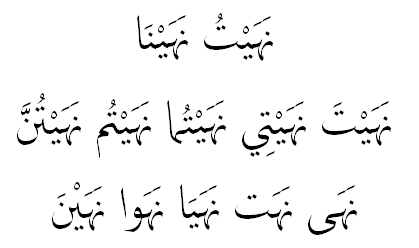 نَهَيْتُ نَهَيْنَا
نَهَيْتَ نَهَيْتِي نَهَيْتُمَا نَهَيْتُم نَهَيْتُنَّ
نَهَى نَهَت نَهَيَا نَهَوا نَهَيْنَ